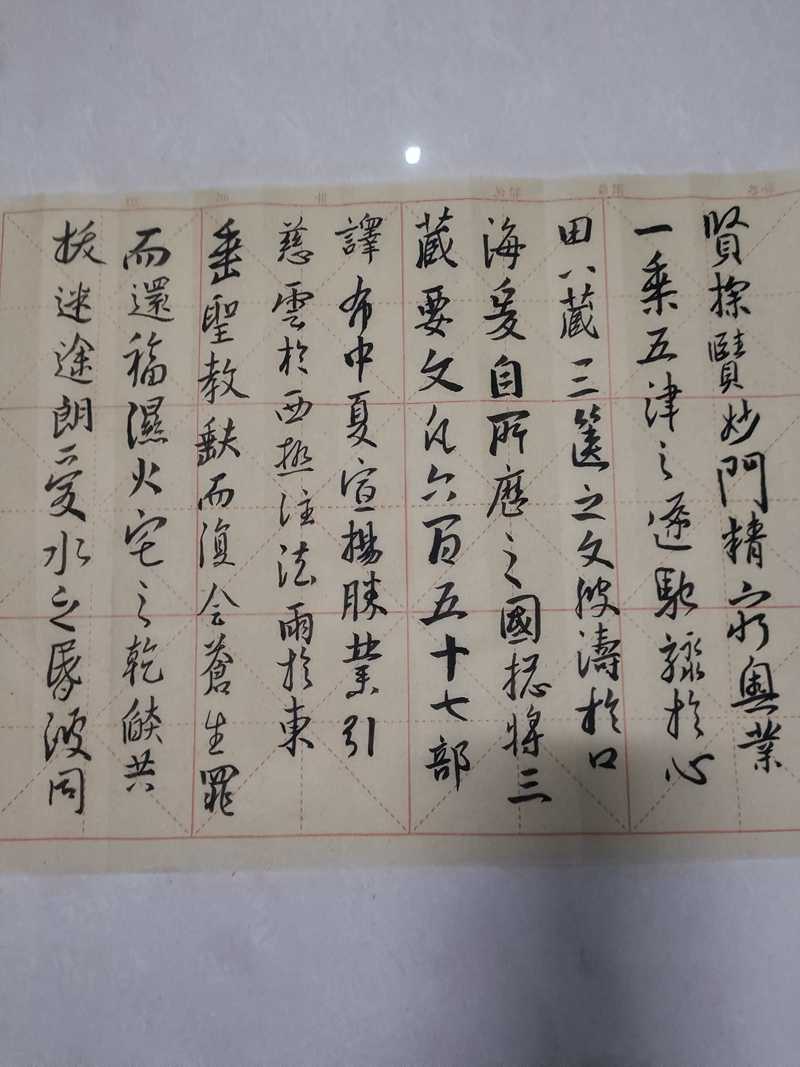 賢探賾妙門精窮奧業
一乗五津之道馳驟於心
田八藏三篋之文波濤於口
海爰自所歷之國揔將三
藏要文凡六百五十七部
譯布中夏宣揚勝業引
慈雲於西極注法雨於東
垂聖教缺而復全蒼生罪
而還福濕火宅之乾燄共
拔迷途朗愛水之昏波同